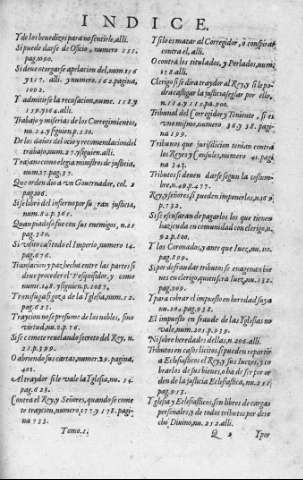 INDICE.
Y de los benedizos para no sentirle, alli.
Si puede darse de Oficio, numero 221.
pag. 1090.
Si deve otorgarse apelacion del, num. 156
y 157. alli. y numero. 162. pagina,
1092.
Y admitirse la recusacion, nume. 158. y
Trabajo y miserias de los Corregimientos,
nu. 24. y siguien. p. 120.
De los daños del ocio y recomendacion del
trabajo, num. 27. y siguien. alli.
Trajano como elegia ministros de justicia,
num. 27. pag. 37.
Que orden dio a un Governador, col. 2
pag. 306.
Si se librò del infierno por su gran justicia,
num. 80. p. 361.
Quan piadoso fue con sus enemigos, n. 21
pag. 530.
Si visitò casi todo el Imperio, numero 14.
pag. 676.
Transacion y paz hecha entre las partes si
deve proceder el Pesquisidor, y como
nume. 148. y siguien. p. 1087.
Transfuga si goza de la Yglesia, num. 12.
pag. 637.
Traycion no se presume de los nobles, sino
virtud, num. 2. p. 76.
Si se comete revelando secreto del Rey, n.
23. p. 399.
O abriendo sus cartas, numer. 39. pagina,
402.
Al traydor si le vale la Yglesia, nu. 14.
pag. 623.
Contra el Rey, y Señores, quando se come
te traycion, numero, 177. y 178. pagi-
na 733.
Tomo. 1.
Y si es matar al Corregidor, ò conspirar
contra el, alli.
O contra los titulados, y Perlados, num.
178. alli.
Clerigo si serà traydor al Rey, y si le po-
drà castigar la justicia seglar por ello,
Tribunal del Corregidor y Teniente, si es
uno mismo, numero 37. y 38. pagi-
na 199.
Tributos que jurisdicion tenian contra
los Reyes y Consules, numero 41. pagi-
na 343.
Tributos si deven darse segun la costum-
bre, n. 49. p. 477.
Rey, y Señores, si pueden imponerlos, n. 169
p. 732.
Si se escusaràn de pagarlos los que tienen
hazienda en comunidad con clerigo, n.
92. p. 660.
Y los Coronados, y ante que Juez, nu. 20.
pag. 699.
Si por defraudar tributos se enagenan bie
nes en clerigo, quien serà Juez, nu. 132.
pag. 209.
Y para cobrar el impuesto en heredad suya
nu. 204. 932.
El impuesto en fraude de las Yglesias no
vale, num. 205. p. 939.
Ni sobre heredades dellas, n. 206. alli.
Tributos en casos licitos, si pueden repartir
a Eclesiasticos el Rey, y sus Juezes, y co-
brarlos de sus bienes, o ha de ser por or-
den de la justicia Eclesiastica, nu. 216,
pag. 913.
Yglesia y Eclesiasticos, son libres de cargas
personales, y de todos tributos por dere
cho Divino, nu. 252. alli.
Q 2
Ygor